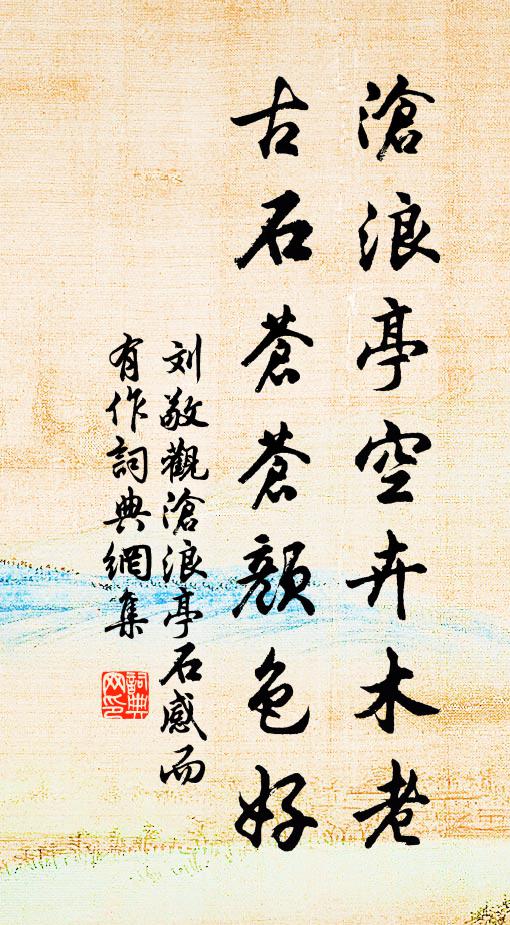 滄浪亭空卉木老
古石蒼蒼顏色好
刘敞觀滄浪亭石感而
有作詞典網集
詞典
网印